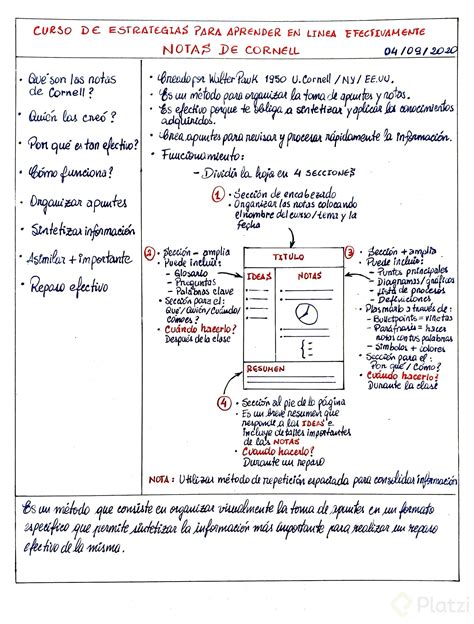 CURSO DE ESTRATEGIAS PARA APRENDER EN LINEA EFECTIVAMENTE
NOTAS DE CORNELL 04/09/2020
· Qué son las notas
de Cornell?
· Quién las creó?
· Por qué es tan efectivo?
· Cómo funciona?
· Organizar apuntes
· Sintetizar información
· Asimilar + importante
· Repaso efectivo
· Creado por Walter Pauk 1950 U. Cornell / NY / EE.UU.
· Es un método para organizar la toma de apuntes y notas.
· Es efectivo porque te obliga a sintetizar y aplicar los conocimientos
adquiridos.
· Crea apuntes para revisar y procesar rápidamente la información.
· Funcionamiento:
- Dividir la hoja en 4 SECCIONES
1 · Sección de encabezado
· Organizar las notas colocando
el nombre del curso/tema y la
fecha
2 · Sección - amplia
· Puede incluir:
- Glosario
- Preguntas
- Palabras clave
· Sección para el:
Qué/Quién/Cuándo/
Cómo es?
· Cuándo hacerlo?
Después de la clase
TITULO
IDEAS
NOTAS
RESUMEN
3 · Sección + amplia
· Puede incluir:
- Puntos principales
- Diagramas/gráficos
- Lista de procesos
- Definiciones
· Plasmarlo a través de:
- Bulletpoints = viñetas
- Paráfrasis = hacer
notas con tus palabras
- Símbolos + colores
· Sección para el:
Por qué / Cómo?
· Cuándo hacerlo?
Durante la clase
4 · Sección al pie de la página
· Es un breve resumen que
responde a las IDEAS e
incluye detalles importantes
de las NOTAS
· Cuándo hacerlo?
Durante un repaso
NOTA: Utilizar método de repetición espaciada para consolidar información
Es un método que consiste en organizar visualmente la toma de apuntes en un formato
específico que permite sintetizar la información más importante para realizar un repaso
efectivo de la misma.
Platzi